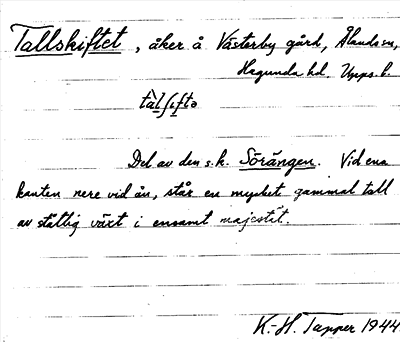 Tallskiftet, åker å Västerby gård, Ålands sn,
Hagunda hd. Upps. l.
tàlʃıftə
Del av den s.k. Sörängen. Vid ena
kanten nere vid ån, står en mycket gammal tall
av ståtlig växt i ensamt majestät.
K.-H. Tapper 1944